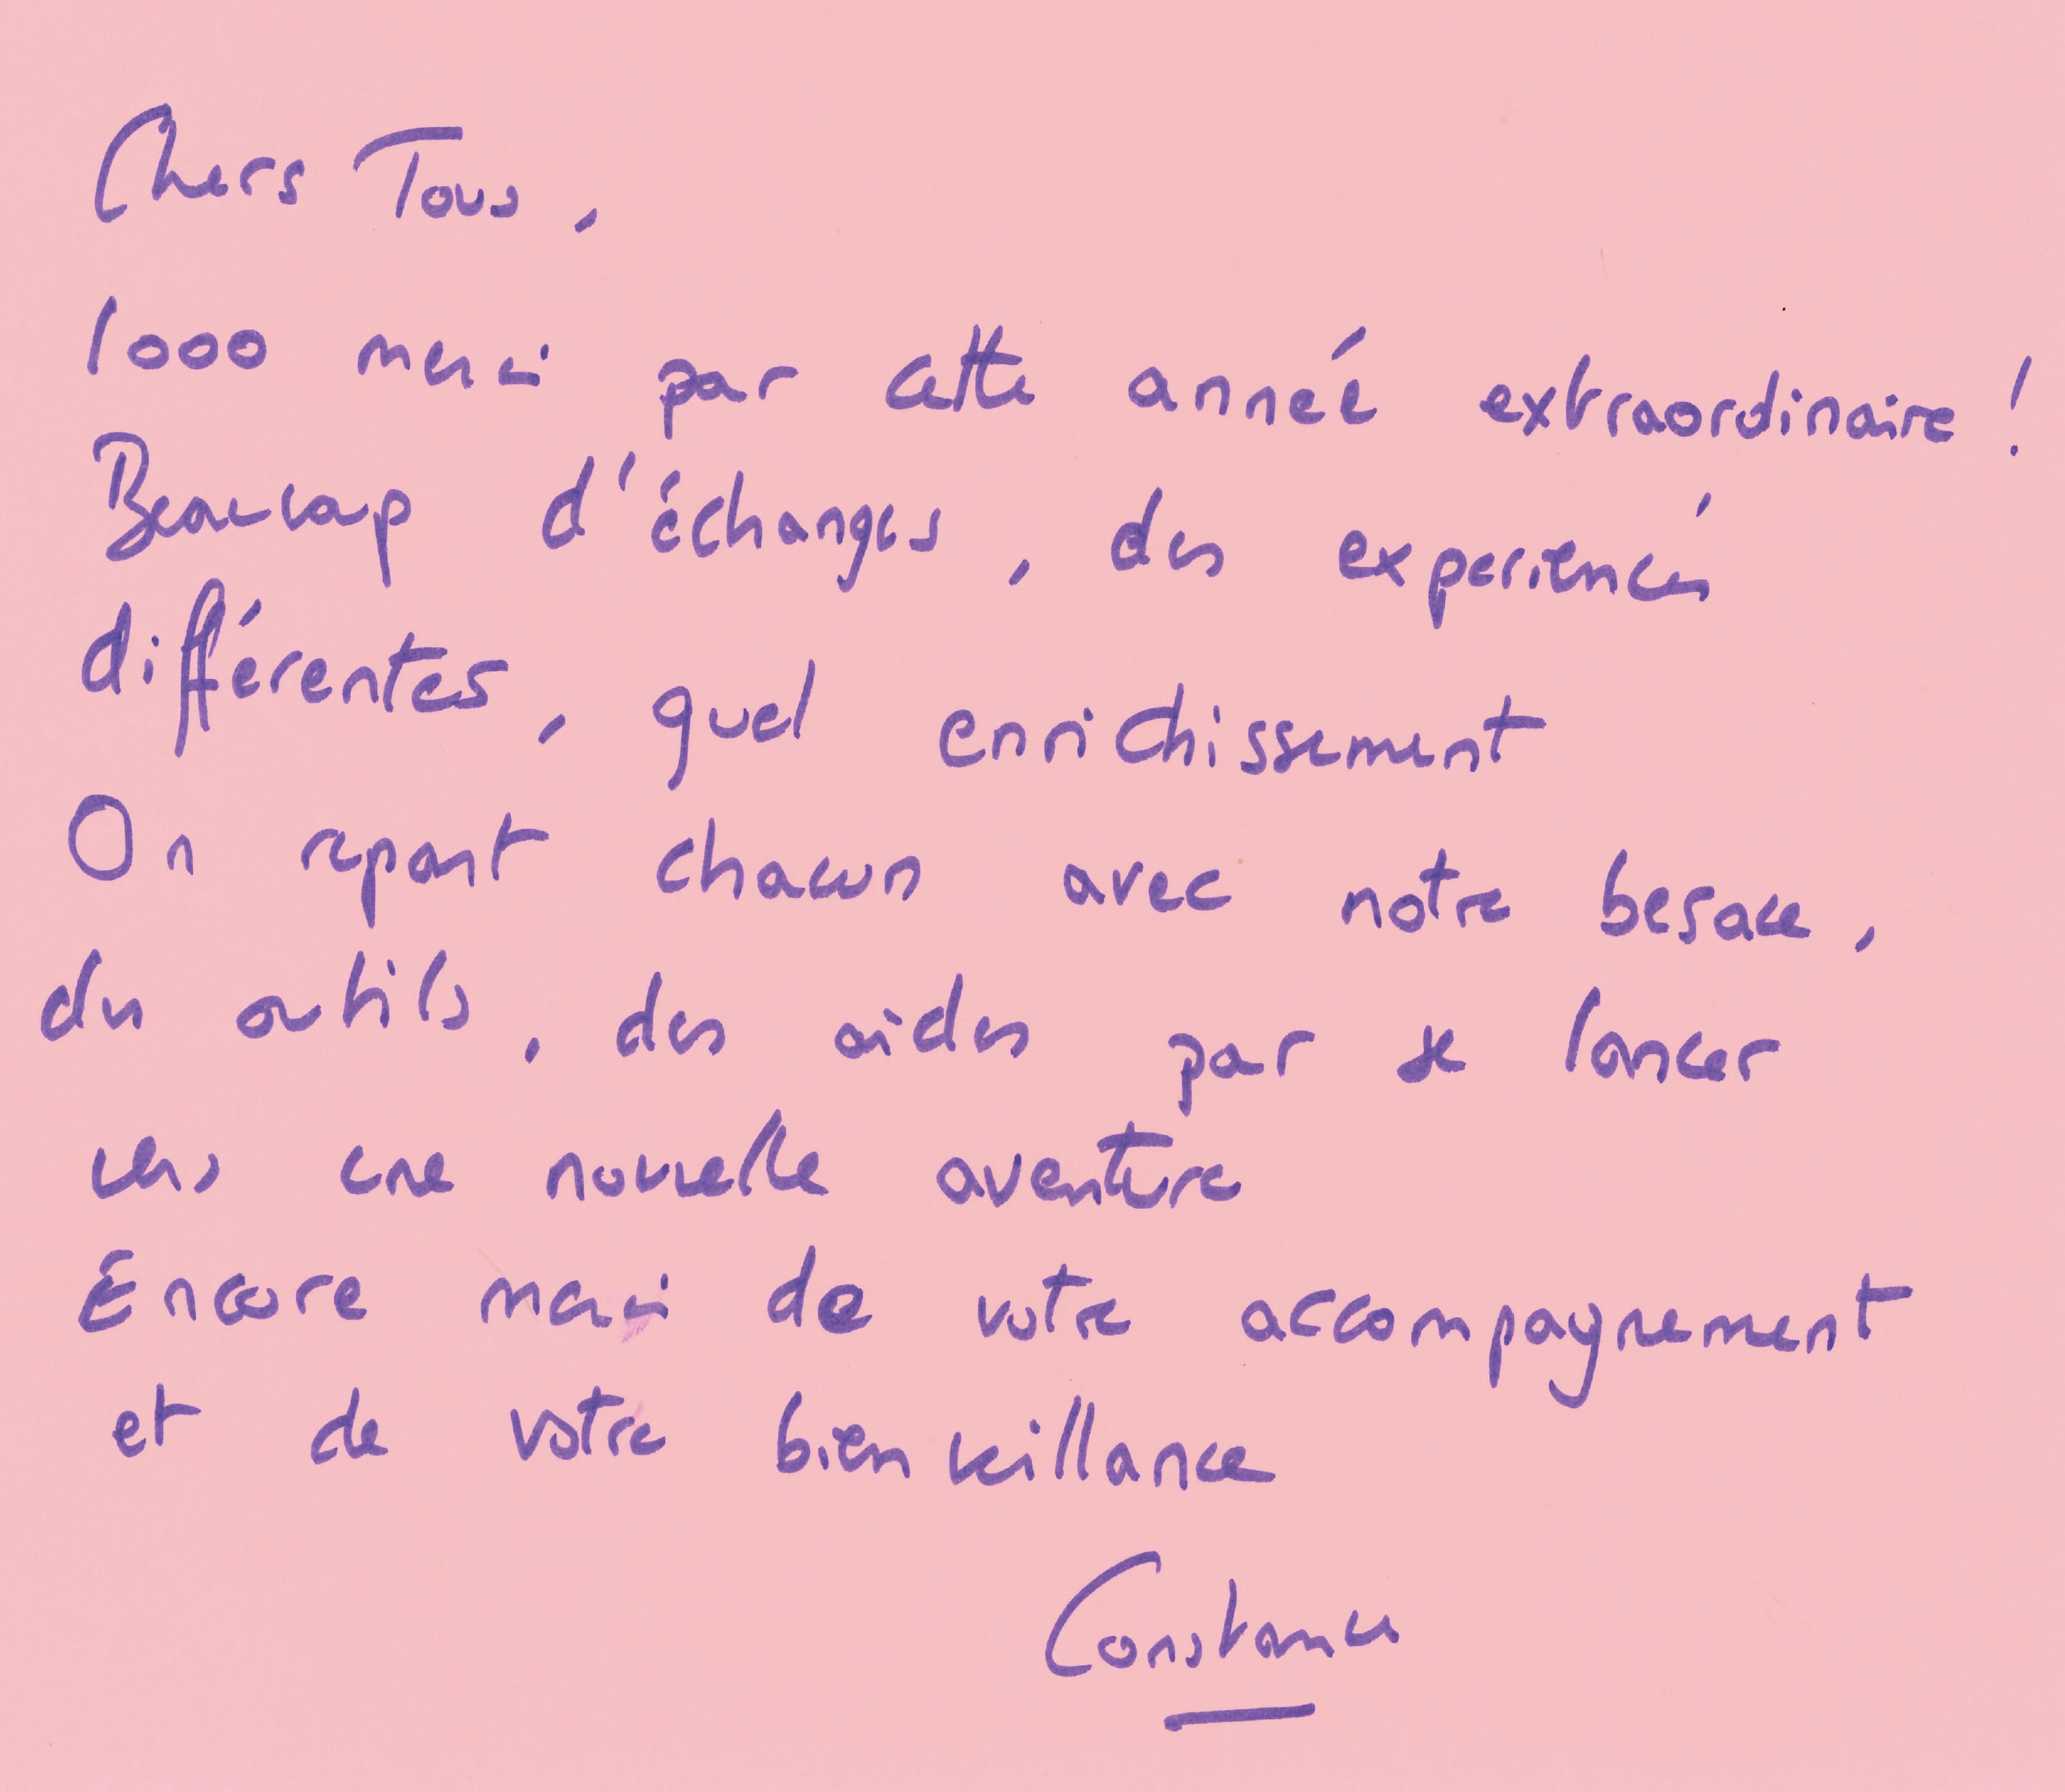 Chers Tous,
1000 merci par cette année extraordinaire !
Beaucoup d'échanges, des experiences
différentes, quel enrichissement
On repart chacun avec notre besace,
des outils, des aides par se lancer
vers une nouvelle aventure
Encore merci de votre accompagnement
et de votre bienveillance
Constance